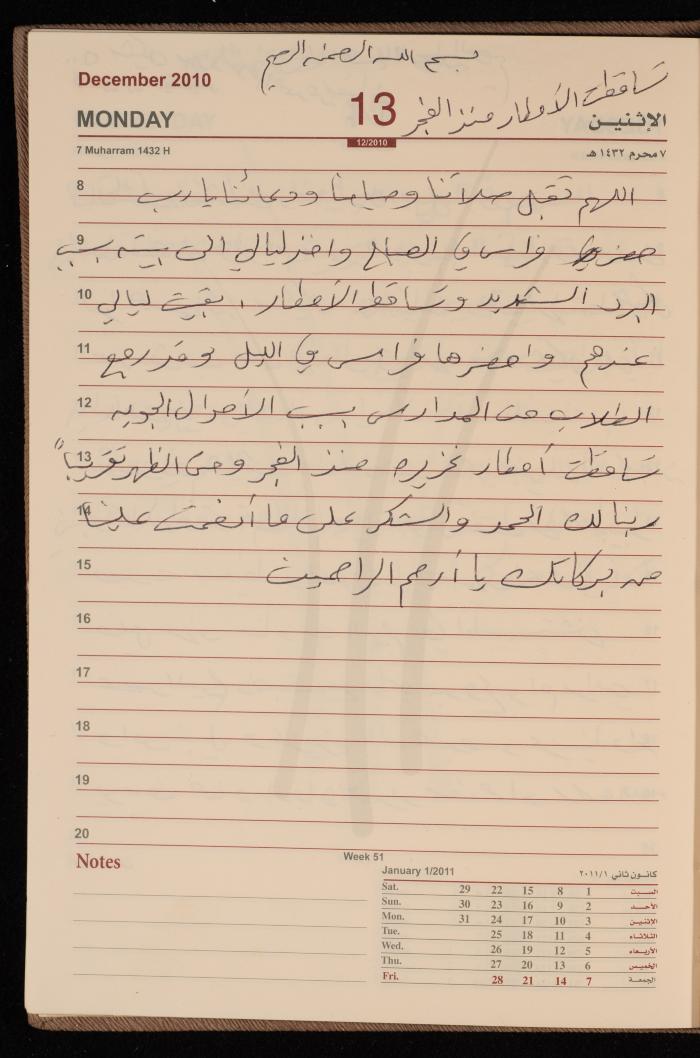 بسم الله الرحمن الرحيم
December 2010
تساقطت الأمطار منذ الفجر
MONDAY
13
الإثنين
12/2010
7 Muharram 1432 H
٧ محرم ١٤٣٢ هـ
8 اللهم تقبل صلاتنا وصيامنا ودعائنا يارب
9 حضر فراس في الصباح واخذ ليالي الى بيته بسبب
10 البرد الشديد وتساقط الأمطار . بقيت ليالي
11 عندهم واحضرها فراس في الليل وقد رجع
12 الطلاب من المدارس بسبب الأحوال الجويه
13 تساقطت أمطار غزيره منذ الفجر وحتى الظهر تقريباً
14 ربنا لك الحمد والشكر على ما أنعمت علينا
15 من بركاتك يا أرحم الراحمين
16
17
18
19
20
Notes
Week 51
January 1/2011
كانون ثاني ٢٠١١/١
Sat. 29 22 15 8 1 السبت
Sun. 30 23 16 9 2 الأحد
Mon. 31 24 17 10 3 الإثنين
Tue. 25 18 11 4 الثلاثاء
Wed. 26 19 12 5 الأربعاء
Thu. 27 20 13 6 الخميس
Fri. 28 21 14 7 الجمعة